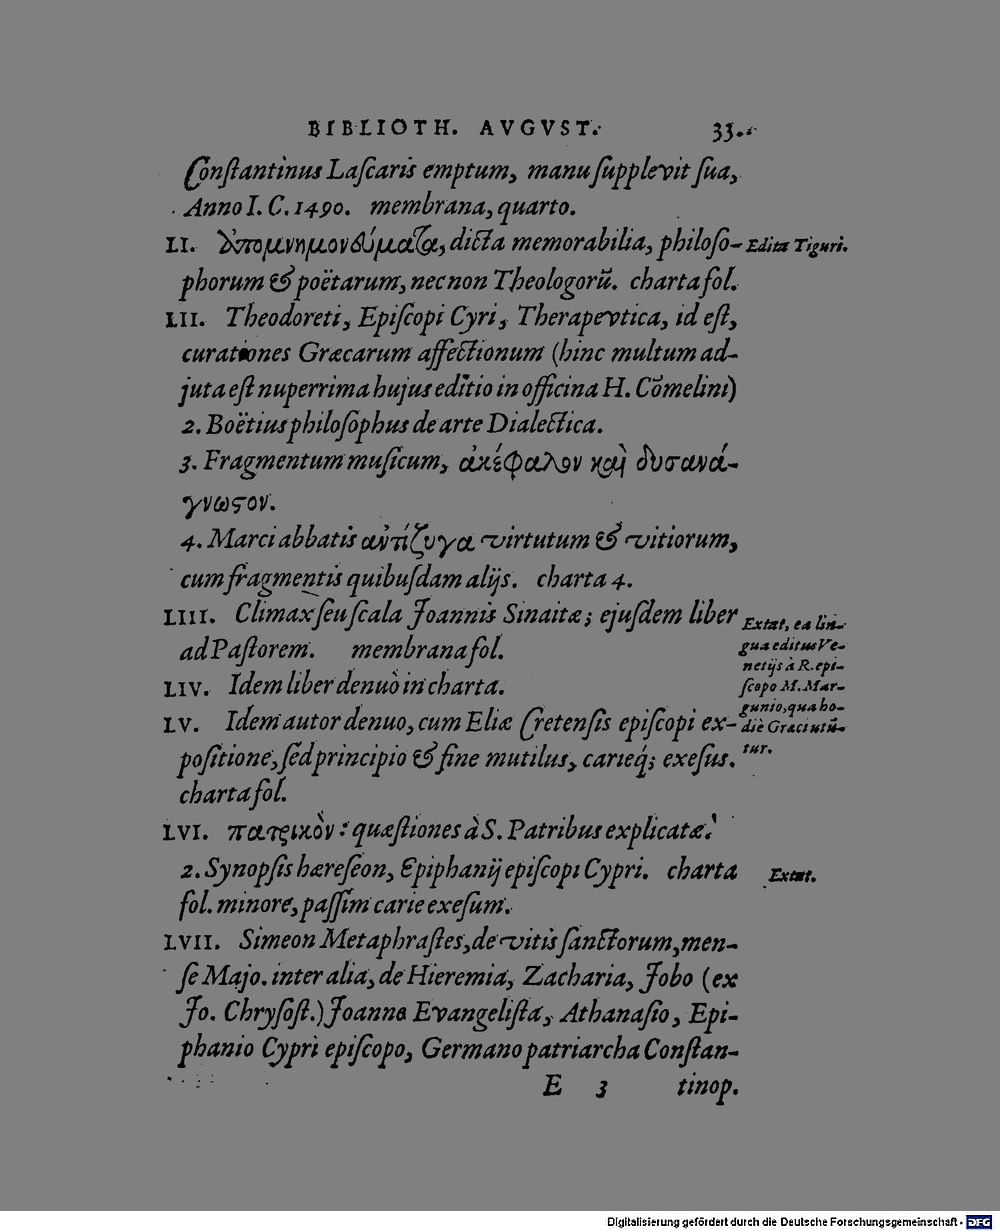 BIBLIOTH. AVGVST. 33.
Conſtantinus Laſcaris emptum, manu ſupplevit ſua,
Anno I. C. 1490. membrana, quarto.
LI. Ἀπομνημονεύματα, dicta memorabilia, philoſo- Edita Tiguri.
phorum & poëtarum, nec non Theologorũ. charta fol.
LII. Theodoreti, Epiſcopi Cyri, Therapevtica, id eſt,
curationes Græcarum affectionum (hinc multum ad-
juta eſt nuperrima hujus editio in officina H. Cõmelini)
2. Boëtius philoſophus de arte Dialectica.
3. Fragmentum muſicum, ἀκέφαλον καὶ δυσανά-
γνωϛον.
4. Marci abbatis ἀντίζυγα virtutum & vitiorum,
cum fragmentis quibuſdam alijs. charta 4.
LIII. Climax ſeu ſcala Joannis Sinaitæ; ejuſdem liber
ad Paſtorem. membrana fol.
Extat, ea lin-
gua editus Ve-
netijs à R. epi-
ſcopo M. Mar-
gunio, qua ho-
die Græci utũ-
tur.
LIV. Idem liber denuò in charta.
LV. Idem autor denuo, cum Eliæ Cretenſis epiſcopi ex-
poſitione, ſed principio & fine mutilus, carieq́; exeſus.
charta fol.
LVI. πατρικὸν: quæſtiones à S. Patribus explicatæ.
2. Synopſis hæreſeon, Epiphanij epiſcopi Cypri. charta Extat.
fol. minore, paſſim carie exeſum.
LVII. Simeon Metaphraſtes, de vitis ſanctorum, men-
ſe Majo. inter alia, de Hieremia, Zacharia, Jobo (ex
Jo. Chryſoſt.) Joanne Evangeliſta, Athanaſio, Epi-
phanio Cypri epiſcopo, Germano patriarcha Conſtan-
E 3 tinop.
Digitalisierung gefördert durch die Deutsche Forschungsgemeinschaft - DFG